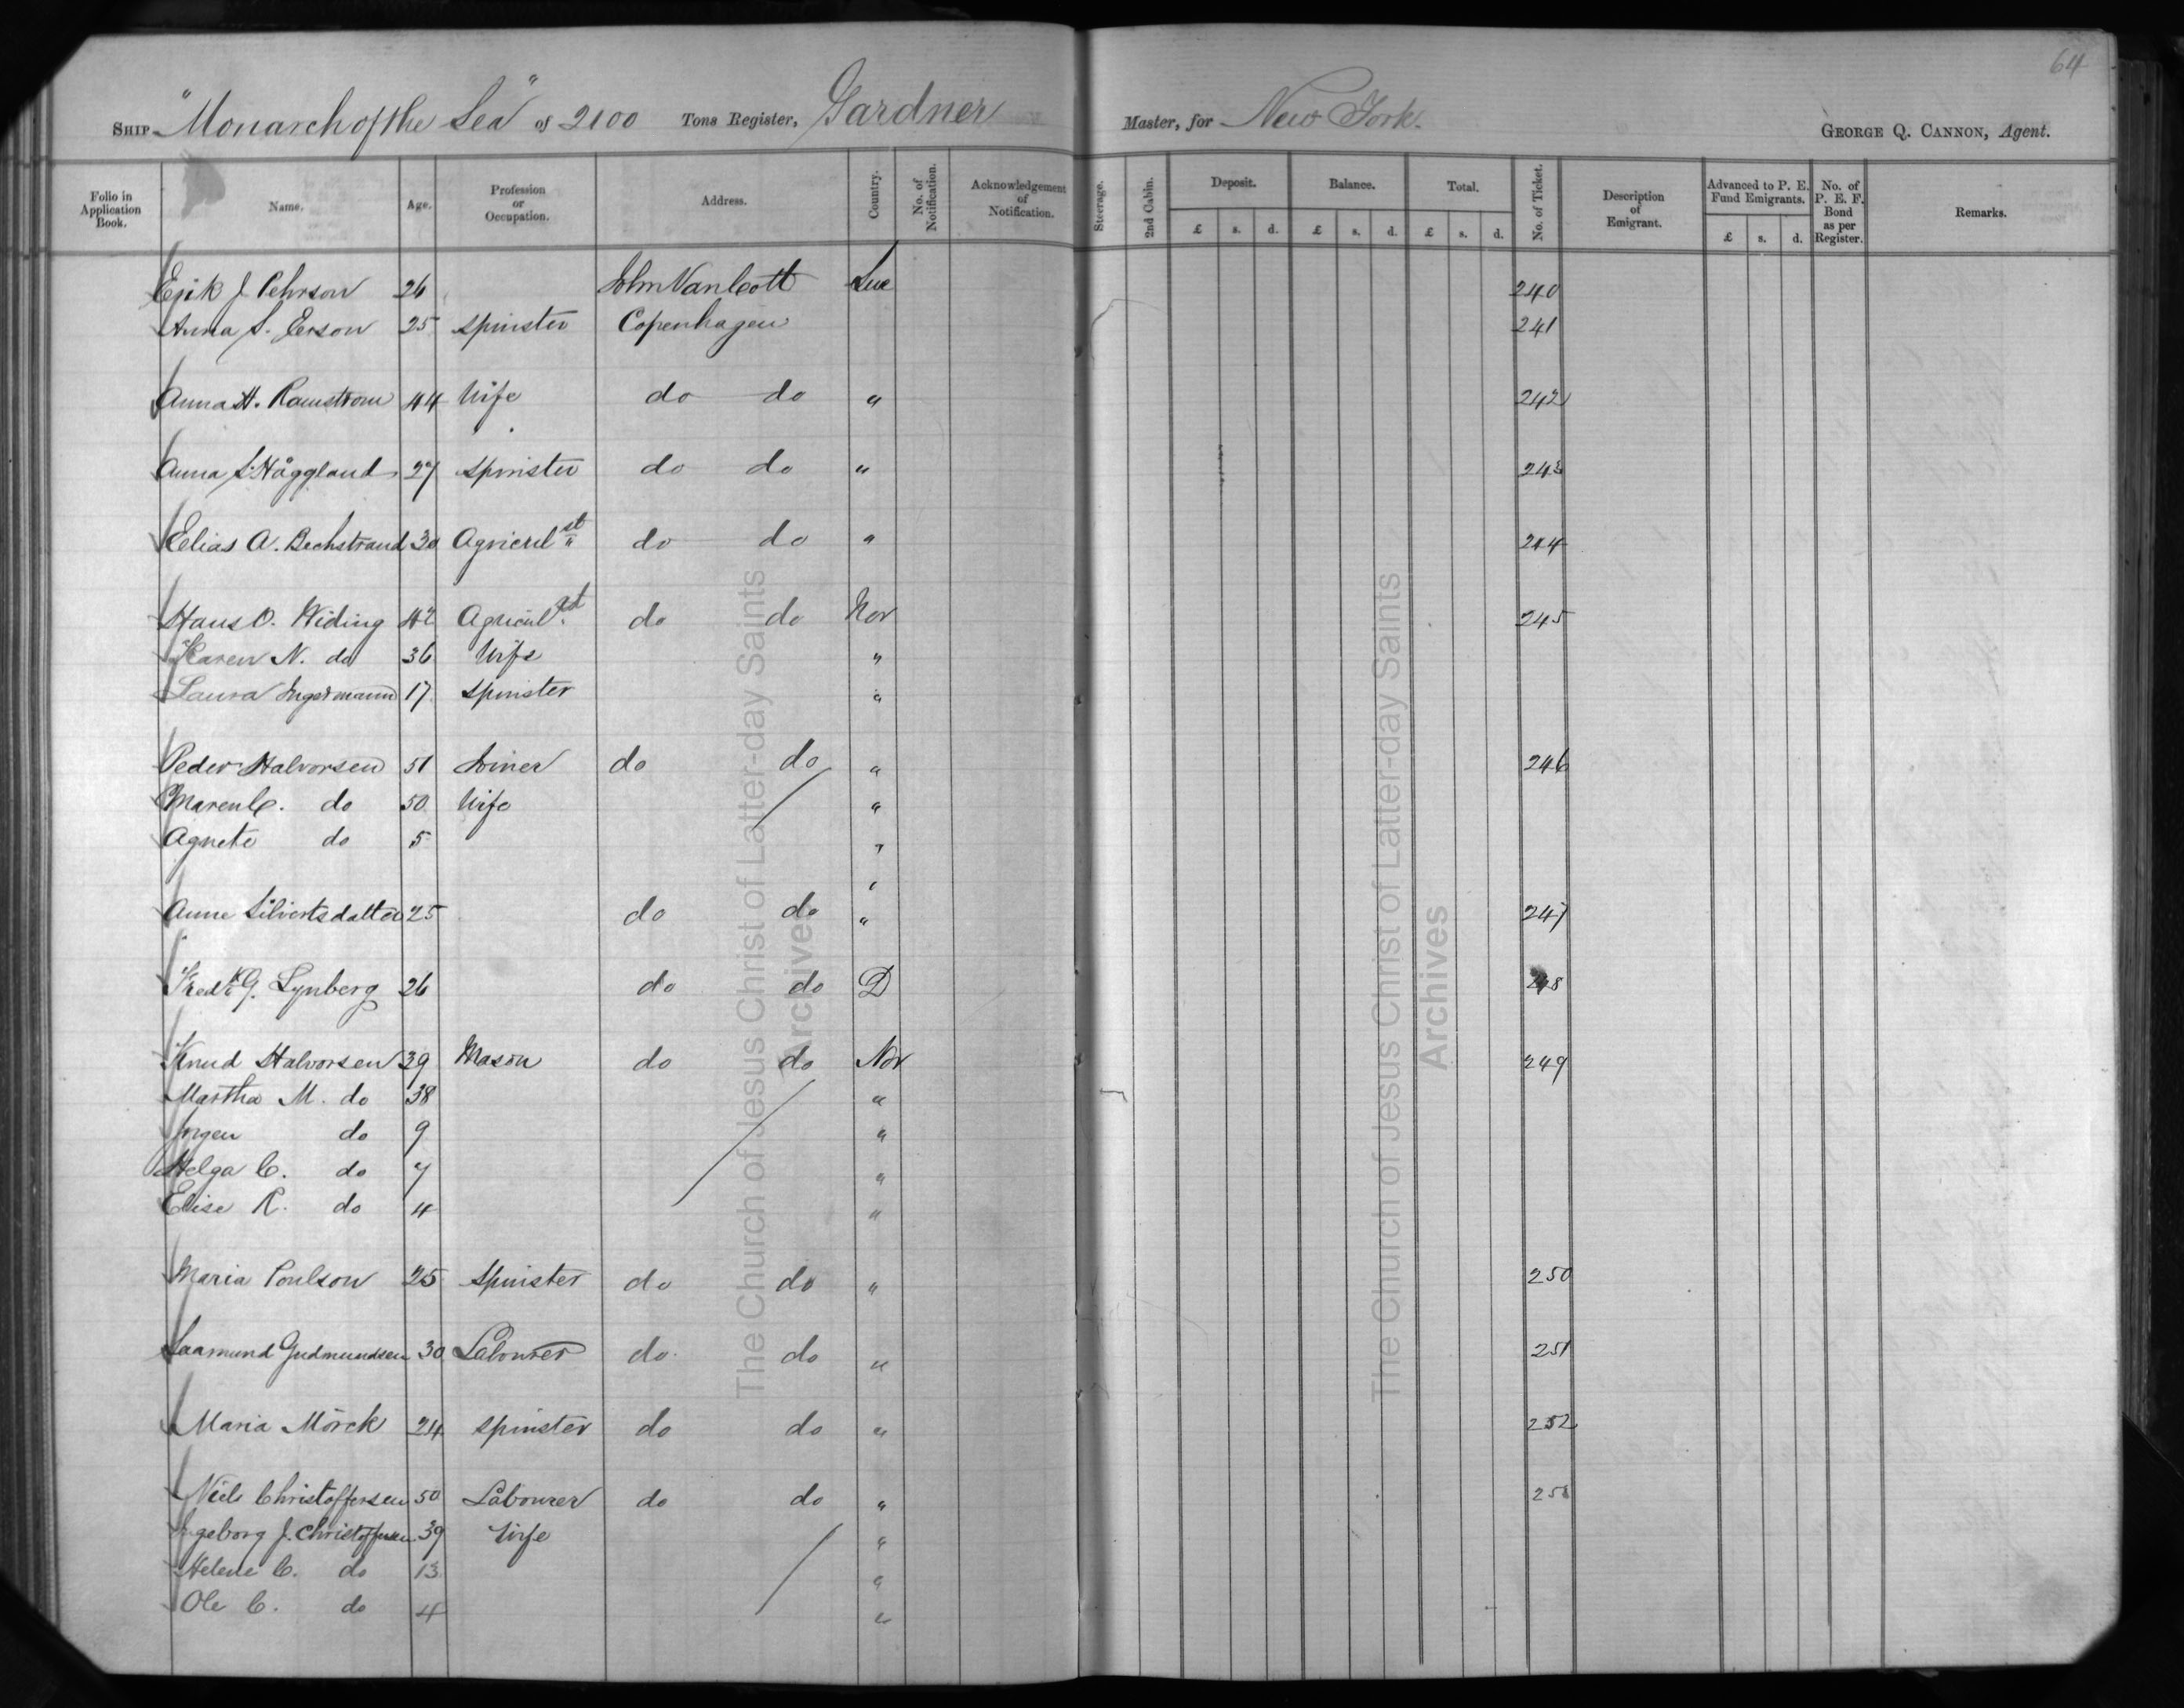 64
SHIP "Monarch of the Sea" of 2100 Tons Register, Gardner Master, for New York. GEORGE Q. CANNON, Agent.
Folio in Application Book. Name. Age. Profession or Occupation. Address. Country. No. of Notification. Acknowledgement of Notification. Steerage. 2nd Cabin. Deposit. Balance. Total. No. of Ticket. Description of Emigrant. Advanced to P. E. Fund Emigrants. No. of P. E. F. Bond as per Register. Remarks.
£ s. d. £ s. d. £ s. d. £ s. d.
Erik J Pehrson 26 John Van Cott Swe 240
Anna S. Erson 25 Spinster Copenhagen 241
Anna H. Ramstrom 44 Wife do do " 242
Anna S. Häggland 27 Spinster do do " 243
Elias A. Bechstrand 30 Agricul st do do " 244
Hans O. Widing 42 Agricul. st do do Nor 245
Karen N. do 36 Wife "
Laura Ingermann 17 Spinster "
Peder Halvorsen 51 Joiner do do " 246
Maren C. do 50 Wife "
Agnete do 5 "
Anne Silvertsdatter 25 do do " 247
Fredk G. Lynberg 26 do do D 248
Knud Halvorsen 39 Mason do do Nor 249
Martha M. do 38 "
Jorgen do 9 "
Helga C. do 7 "
Elise R. do 4 "
Maria Poulson 25 Spinster do do " 250
Saamund Gudmundsen 30 Labourer do do " 251
Maria Mörck 24 Spinster do do " 252
Niels Christoffersen 50 Labourer do do " 253
Ingeborg J. Christoffersen 39 Wife "
Helene C. do 13 "
Ole C. do 4 "
The Church of Jesus Christ of Latter-day Saints
Archives
The Church of Jesus Christ of Latter-day Saints
Archives